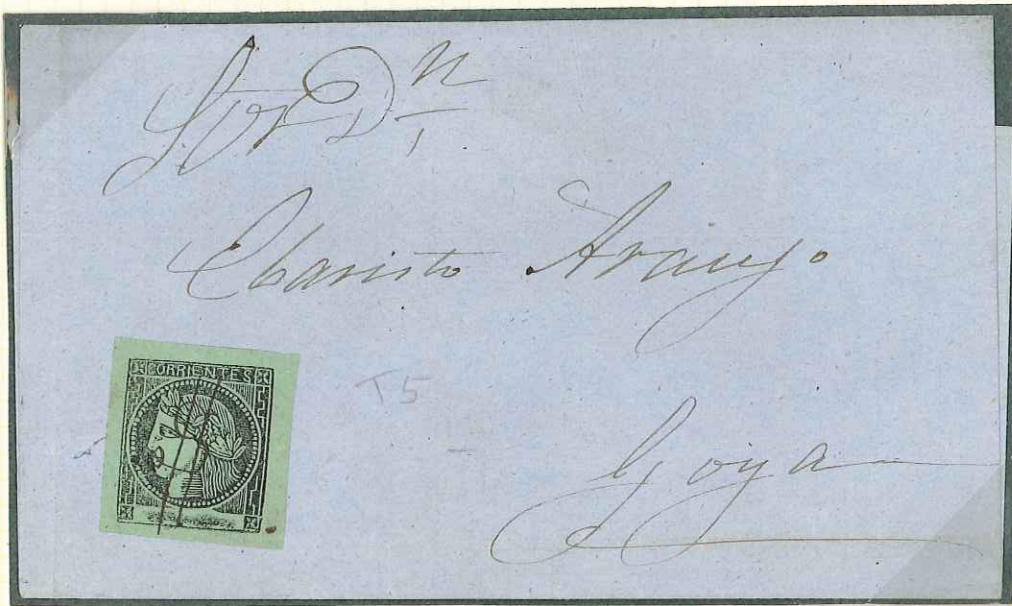 Sor Dn
Ebaristo Araujo
CORRIENTES
T5
Goya